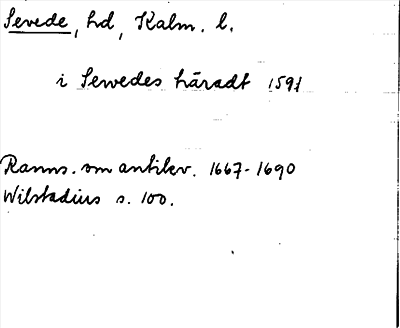 Sevede, hd, Kalm. l.
i Sewedes häradt 1597
Ranns. om antikv. 1667-1690
Wilstadius s. 100.